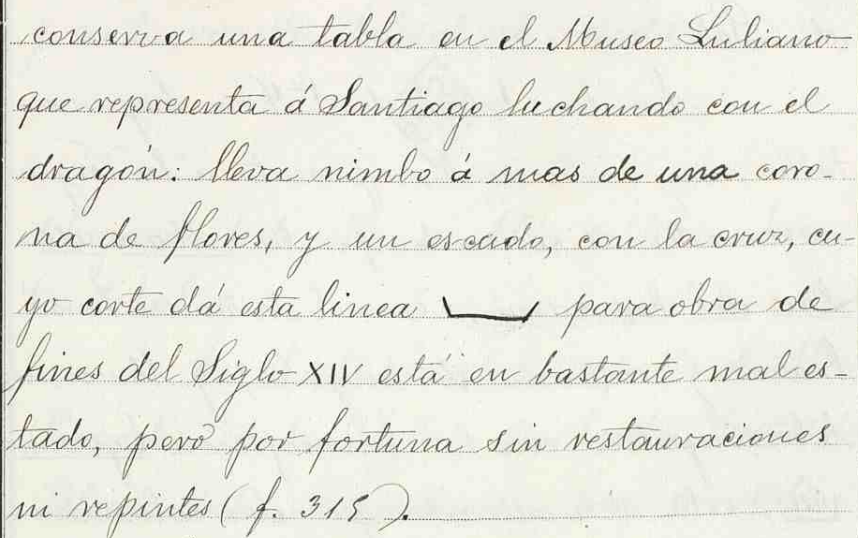 conserva una tabla en el Museo Luliano
que representa á Santiago luchando con el
dragón: lleva nimbo á mas de una coro-
na de flores, y un escudo, con la cruz, cu-
yo corte dá esta linea para obra de
fines del Siglo XIV está en bastante mal es-
tado, pero por fortuna sin restauraciones
ni repintes (f. 315).